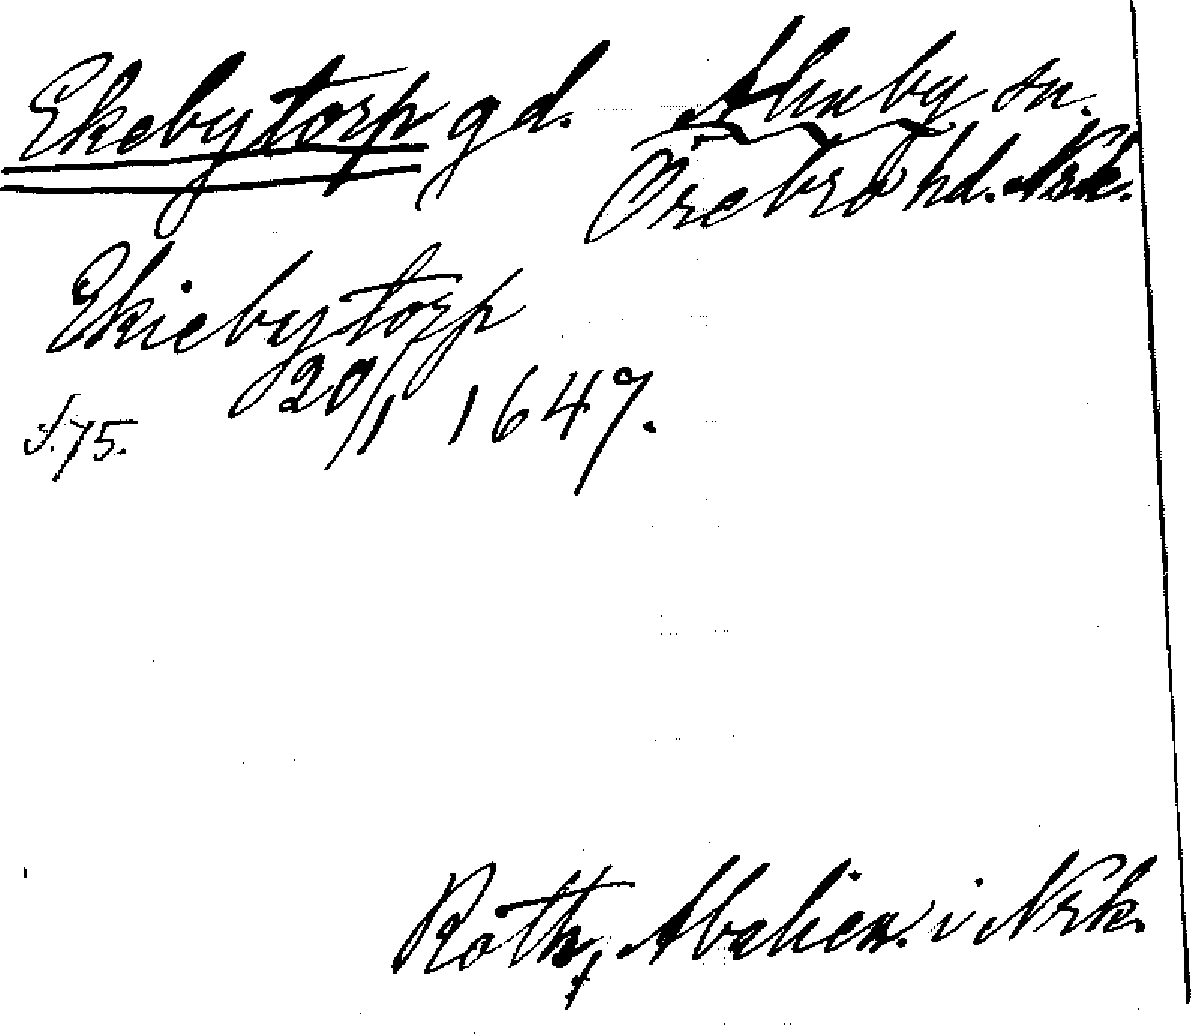 Ekebytorp gd. Almby sn.
Örebro hd. Nrk.
Ekiebytorp
20/1 1647.
s. 75.
Roth, i Nrk.